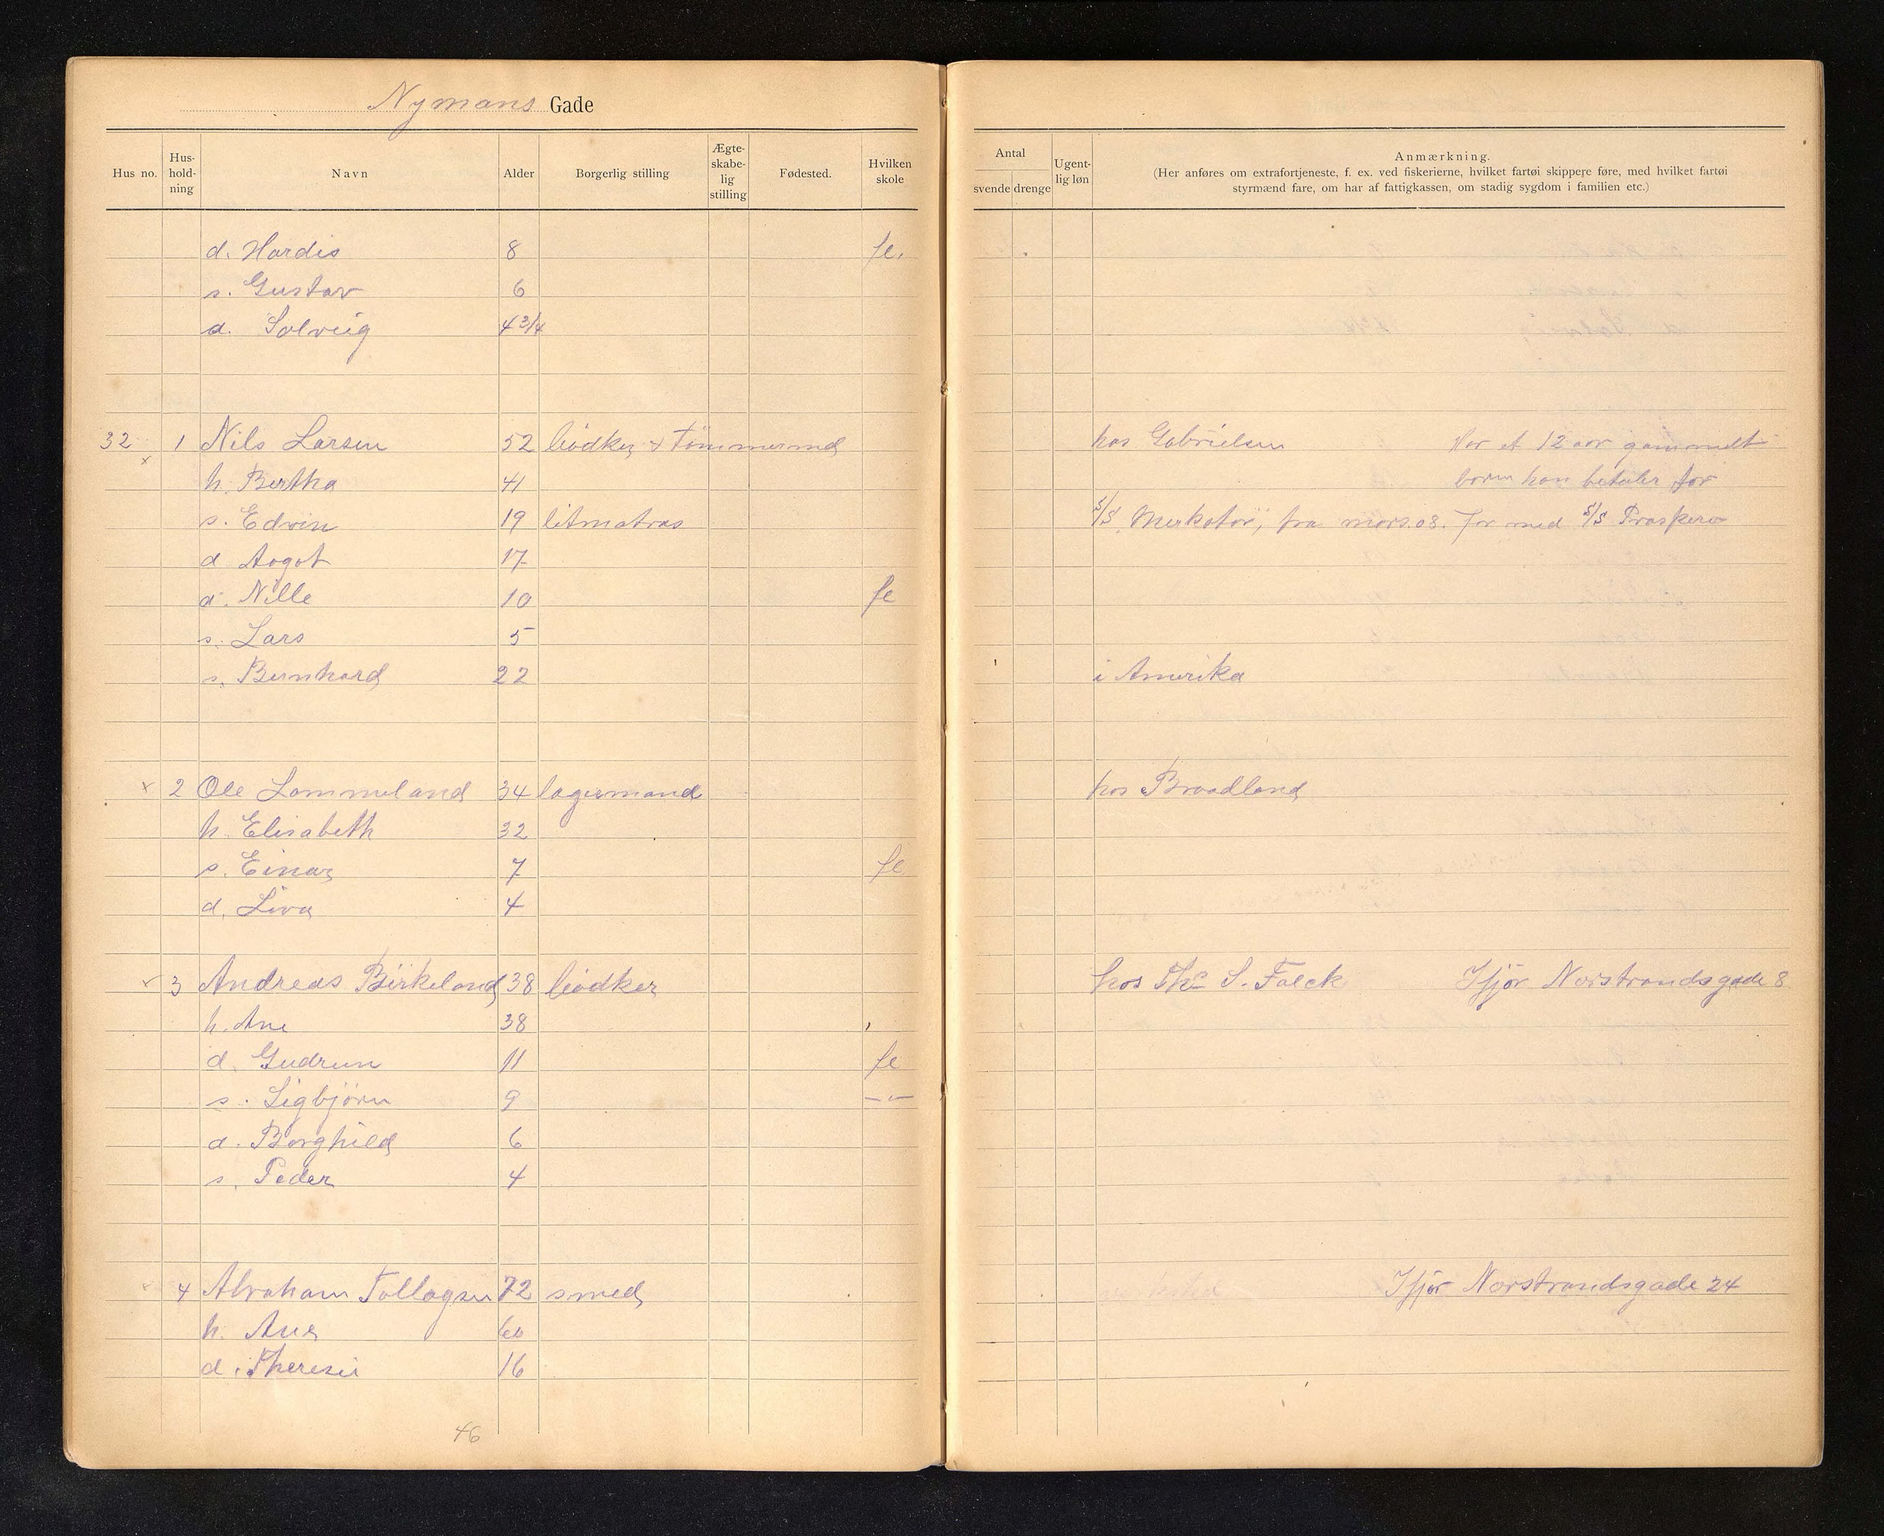 Nymans Gade
Hus no. Hus-hold-ning Navn Alder Borgerlig stilling Ægte-skabe-lig stilling Fødested. Hvilken skole
Antal svende drenge Ugent-lig løn Anmærkning.
(Her anføres om extrafortjeneste, f. ex. ved fiskerierne, hvilket fartøi skippere føre, med hvilket fartøi
styrmænd fare, om har af fattigkassen, om stadig sygdom i familien etc.)
d. Hardis 8 fe.
s. Gustav 6
d. Solveig 4 3/4
32 1 Nils Larsen 52 bødker + tømmermd hos Gabrielsen Har et 12 aar gammelt
x h. Bertha 41 barn han betaler for
s. Edvin 19 letmatros S/S Merkator, fra mars 08. Før med S/S Prospero
d Aagot 17
d. Nille 10 fe
s. Lars 5
s. Bernhard 22 i Amerika
x 2 Ole Lommeland 34 lagermand hos Braadland
h. Elisabeth 32
s. Einar 7 fe
d. Liva 4
x 3 Andreas Birkeland 38 bødker hos Ths S. Falck Ifjor Norstrandsgade 8
h. Ane 38
d. Gudrun 11 fe
s. Sigbjørn 9 –"–
d. Borghild 6
s. Peder 4
x 4 Abraham Tollagsen 72 smed Ifjor Norstrandsgade 24
h. Ane 60
d. Theresie 16
46